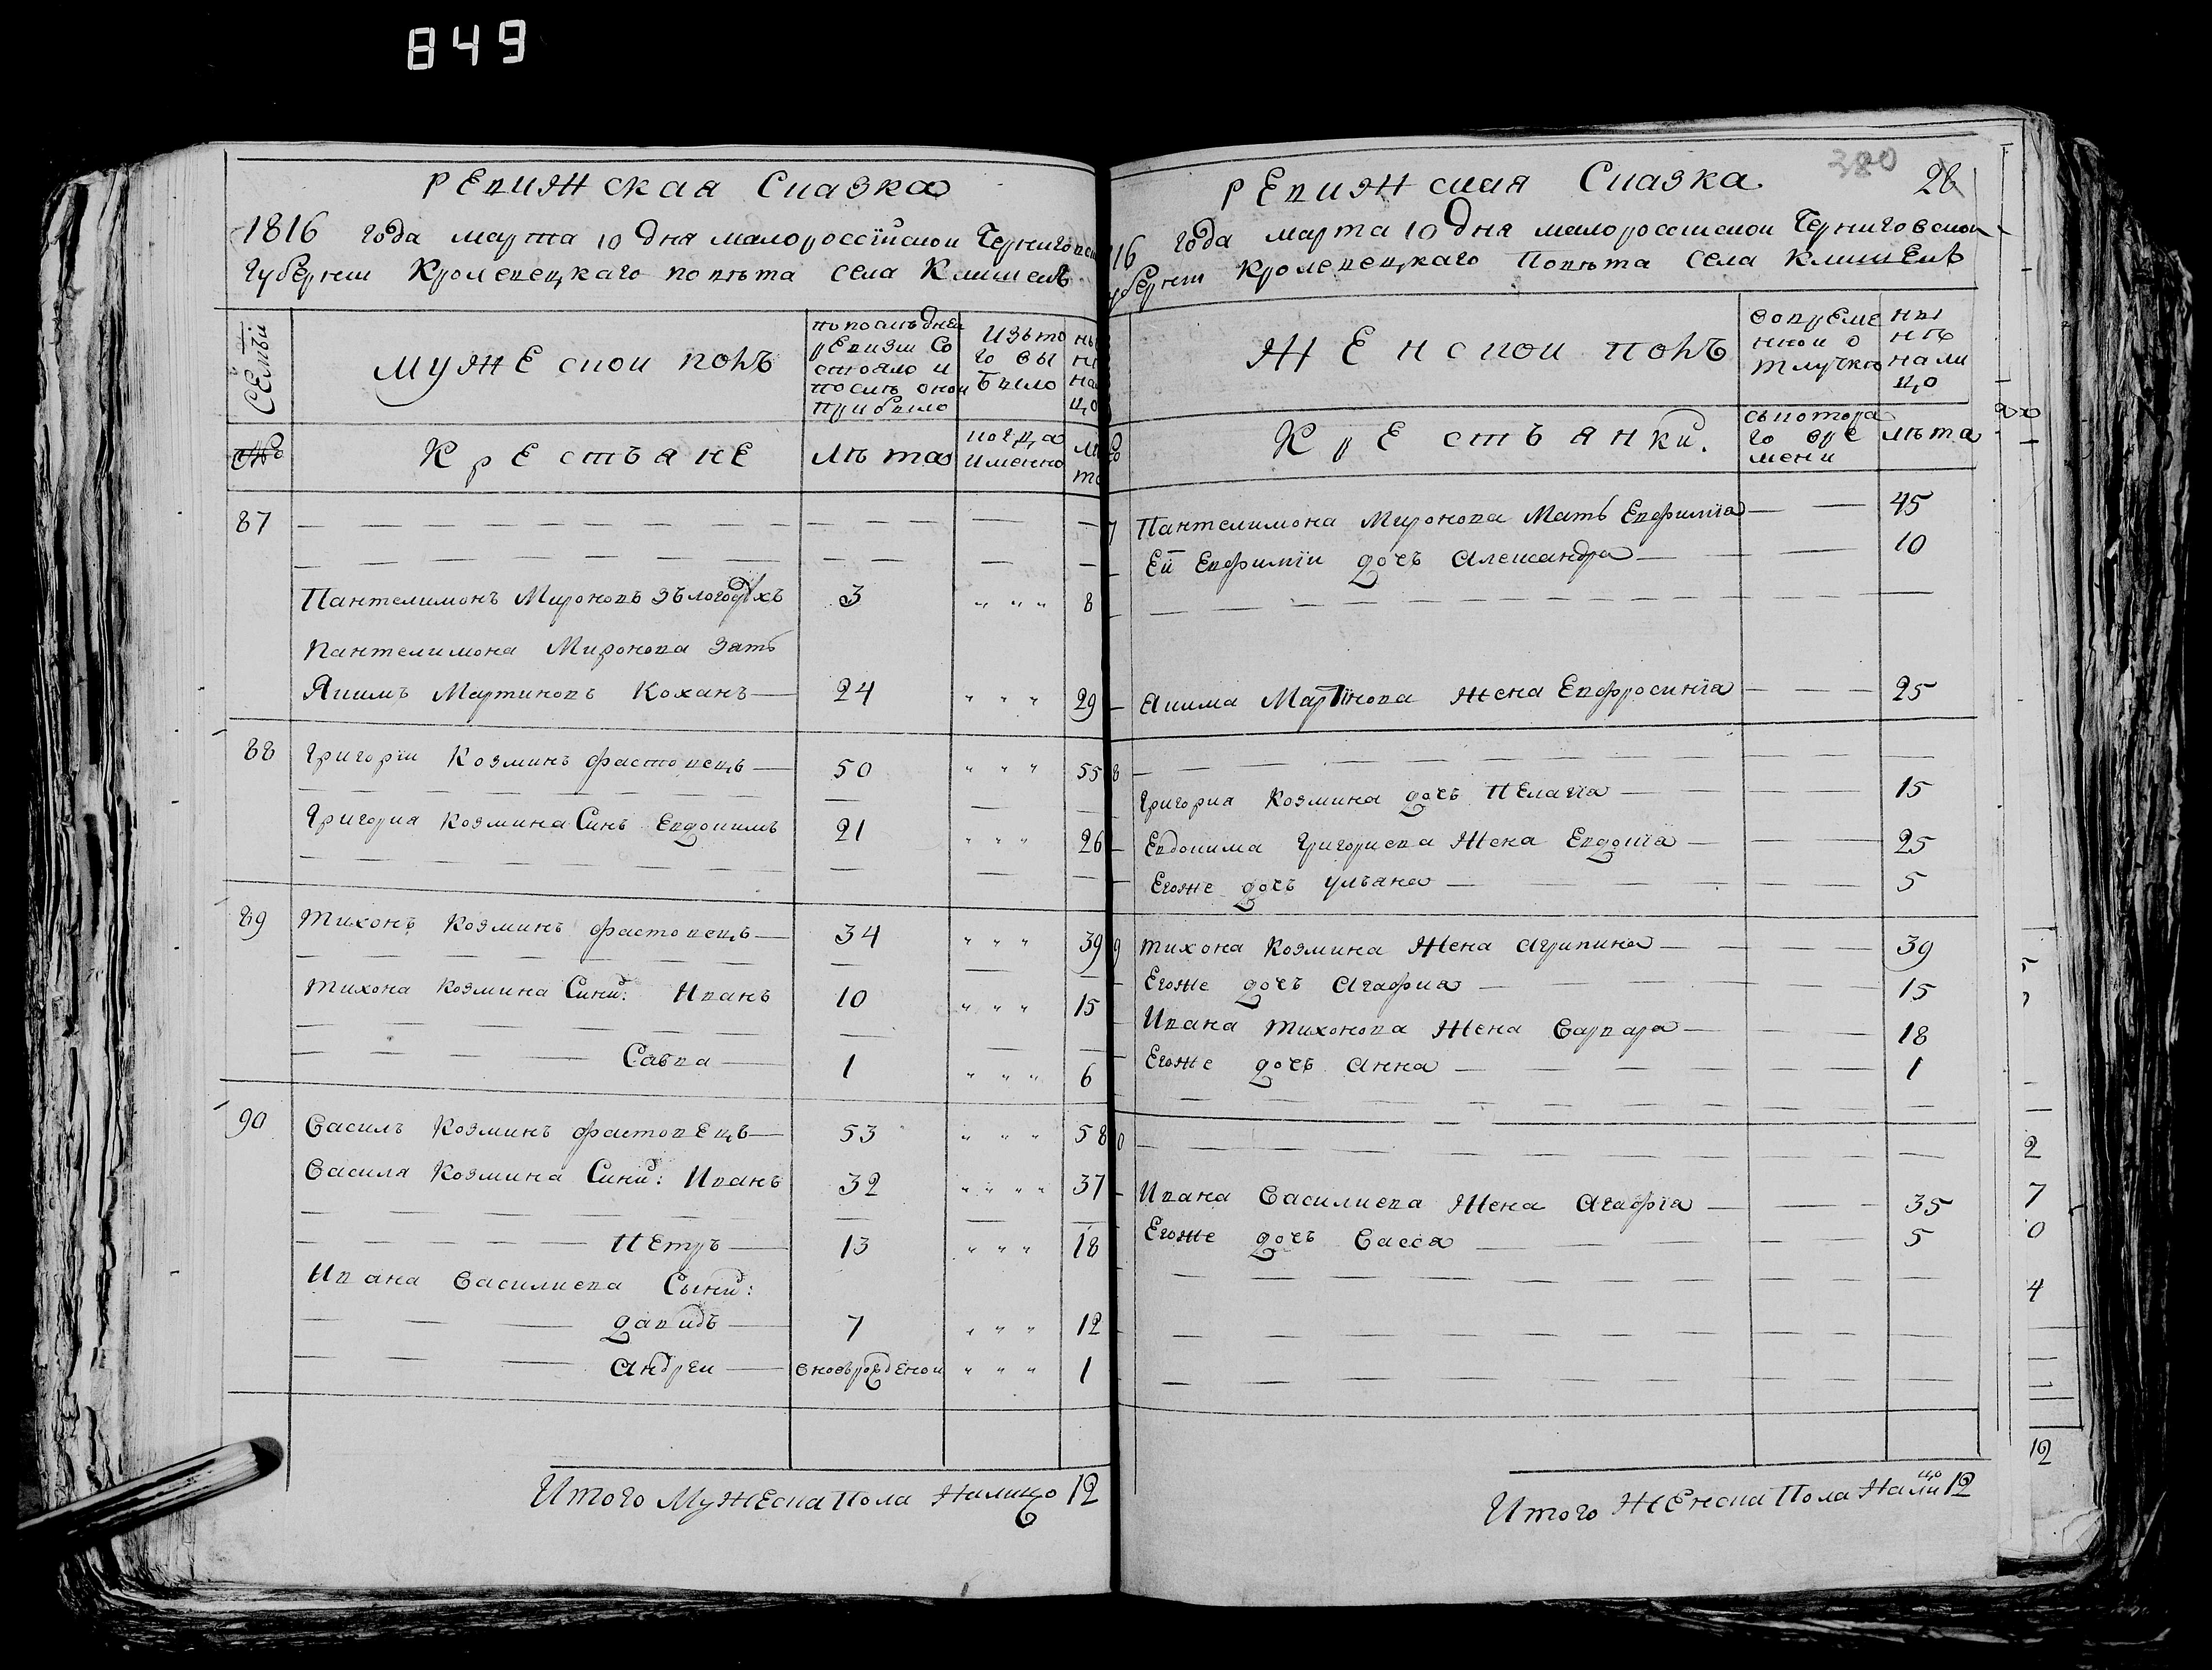 849
РЕвизская Сказка
1816 года марта 10 дня малороссійской Чернигов
Губернии Кролевецкаго повѣта села Клишекъ
Семьи
Мужескои полъ
по последнеи
ревизіи Со
стояло и
послѣ онои
прибыло
Изъ то
го вы
было
на
цо
№
КрЕстьянЕ
лѣта
когда
имянно
87
Пантелимонъ Мироновъ
3
" " "
8
Пантелимона Миронова Зять
Якимъ Мартиновъ Коханъ
24
" " "
29
88
Григории Козминъ фастовецъ
50
" " "
55
Григория Козмина Синъ Евдокимъ
21
" " "
26
89
Тихонъ Козминъ фастовецъ
34
" " "
39
Тихона Козмина Сини: Иванъ
10
" " "
15
Савва
1
" " "
6
90
Василъ Козминъ фастовЕцъ
53
" " "
58
Василя Козмина Сини: Иванъ
32
" " " "
37
ПЕтръ
13
" " "
18
Ивана Василиева Сыни:
давидъ
7
" " "
12
андреи
вновьрожденои
" " "
1
Итого МужЕска Пола Налицо 12
380
28
рЕвизская Сказка
16 года марта 10 дня малороссискои Черниговскои
уберния Кролевецкаго Повѣта Села КлишЕкъ
ЖЕнскои полъ
вовремЕ
нной о
тлучкѣ
ны
нѣ
нали
цо
КрЕстьянки.
съкотора
го врЕ
мени
лѣта
7
Пантелимона Миронова Мать Евфимїа
45
Еи Евфимїи дочъ Александра
10
Акима Мартїнова жена Евфросинїа
25
8
Григория Козмина дочъ пЕлагїа
15
Евдокима Григориева жена Евдокїа
25
Егоже дочъ улъяна
5
9
Тихона Козмина жена агрипина
39
Егоже дочъ агафиа
15
Ивана Тихонова жена Варвара
18
Егоже дочъ анна
1
0
Ивана Василиева жена агафїа
35
Егоже дочъ Васса
5
Итого жЕнска Пола Налицо 12
2
7
0
4
12